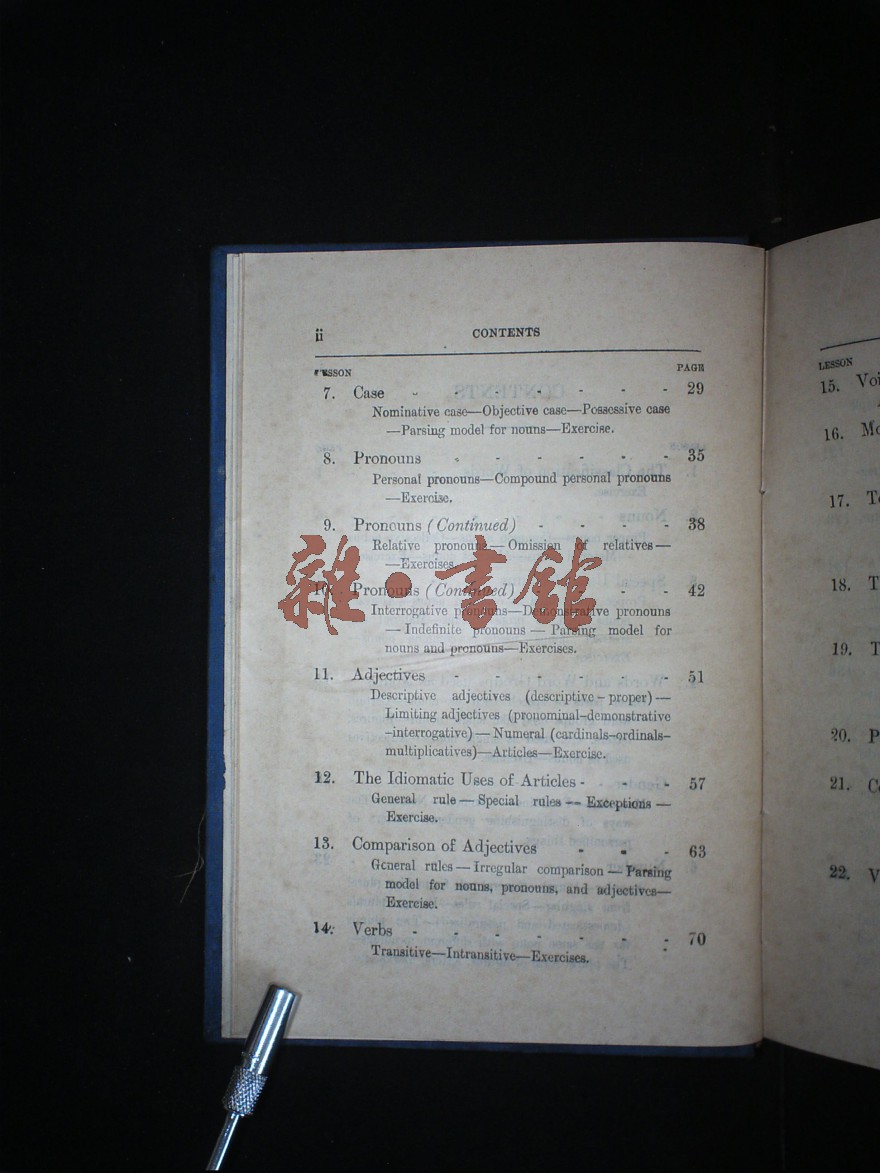 ii CONTENTS
LESSON PAGE
7. Case - - - - - - - 29
Nominative case—Objective case—Possessive case
—Parsing model for nouns—Exercise.
8. Pronouns - - - - - - 35
Personal pronouns—Compound personal pronouns
—Exercise.
9. Pronouns (Continued) - - - - 38
Relative pronouns—Omission of relatives—
—Exercises.
10. Pronouns (Continued) - - - - 42
Interrogative pronouns—Demonstrative pronouns
—Indefinite pronouns—Parsing model for
nouns and pronouns—Exercises.
11. Adjectives - - - - - - 51
Descriptive adjectives (descriptive–proper)—
Limiting adjectives (pronominal–demonstrative
–interrogative)—Numeral (cardinals–ordinals–
multiplicatives)—Articles—Exercise.
12. The Idiomatic Uses of Articles - - - - 57
General rule—Special rules—Exceptions—
Exercise.
13. Comparison of Adjectives - - - 63
General rules—Irregular comparison—Parsing
model for nouns, pronouns, and adjectives—
Exercise.
14. Verbs - - - - - - - 70
Transitive—Intransitive—Exercises.
雜·書館
LESSON
15. Voi
16. Mo
17. T
18. T
19. T
20. P
21. C
22. V